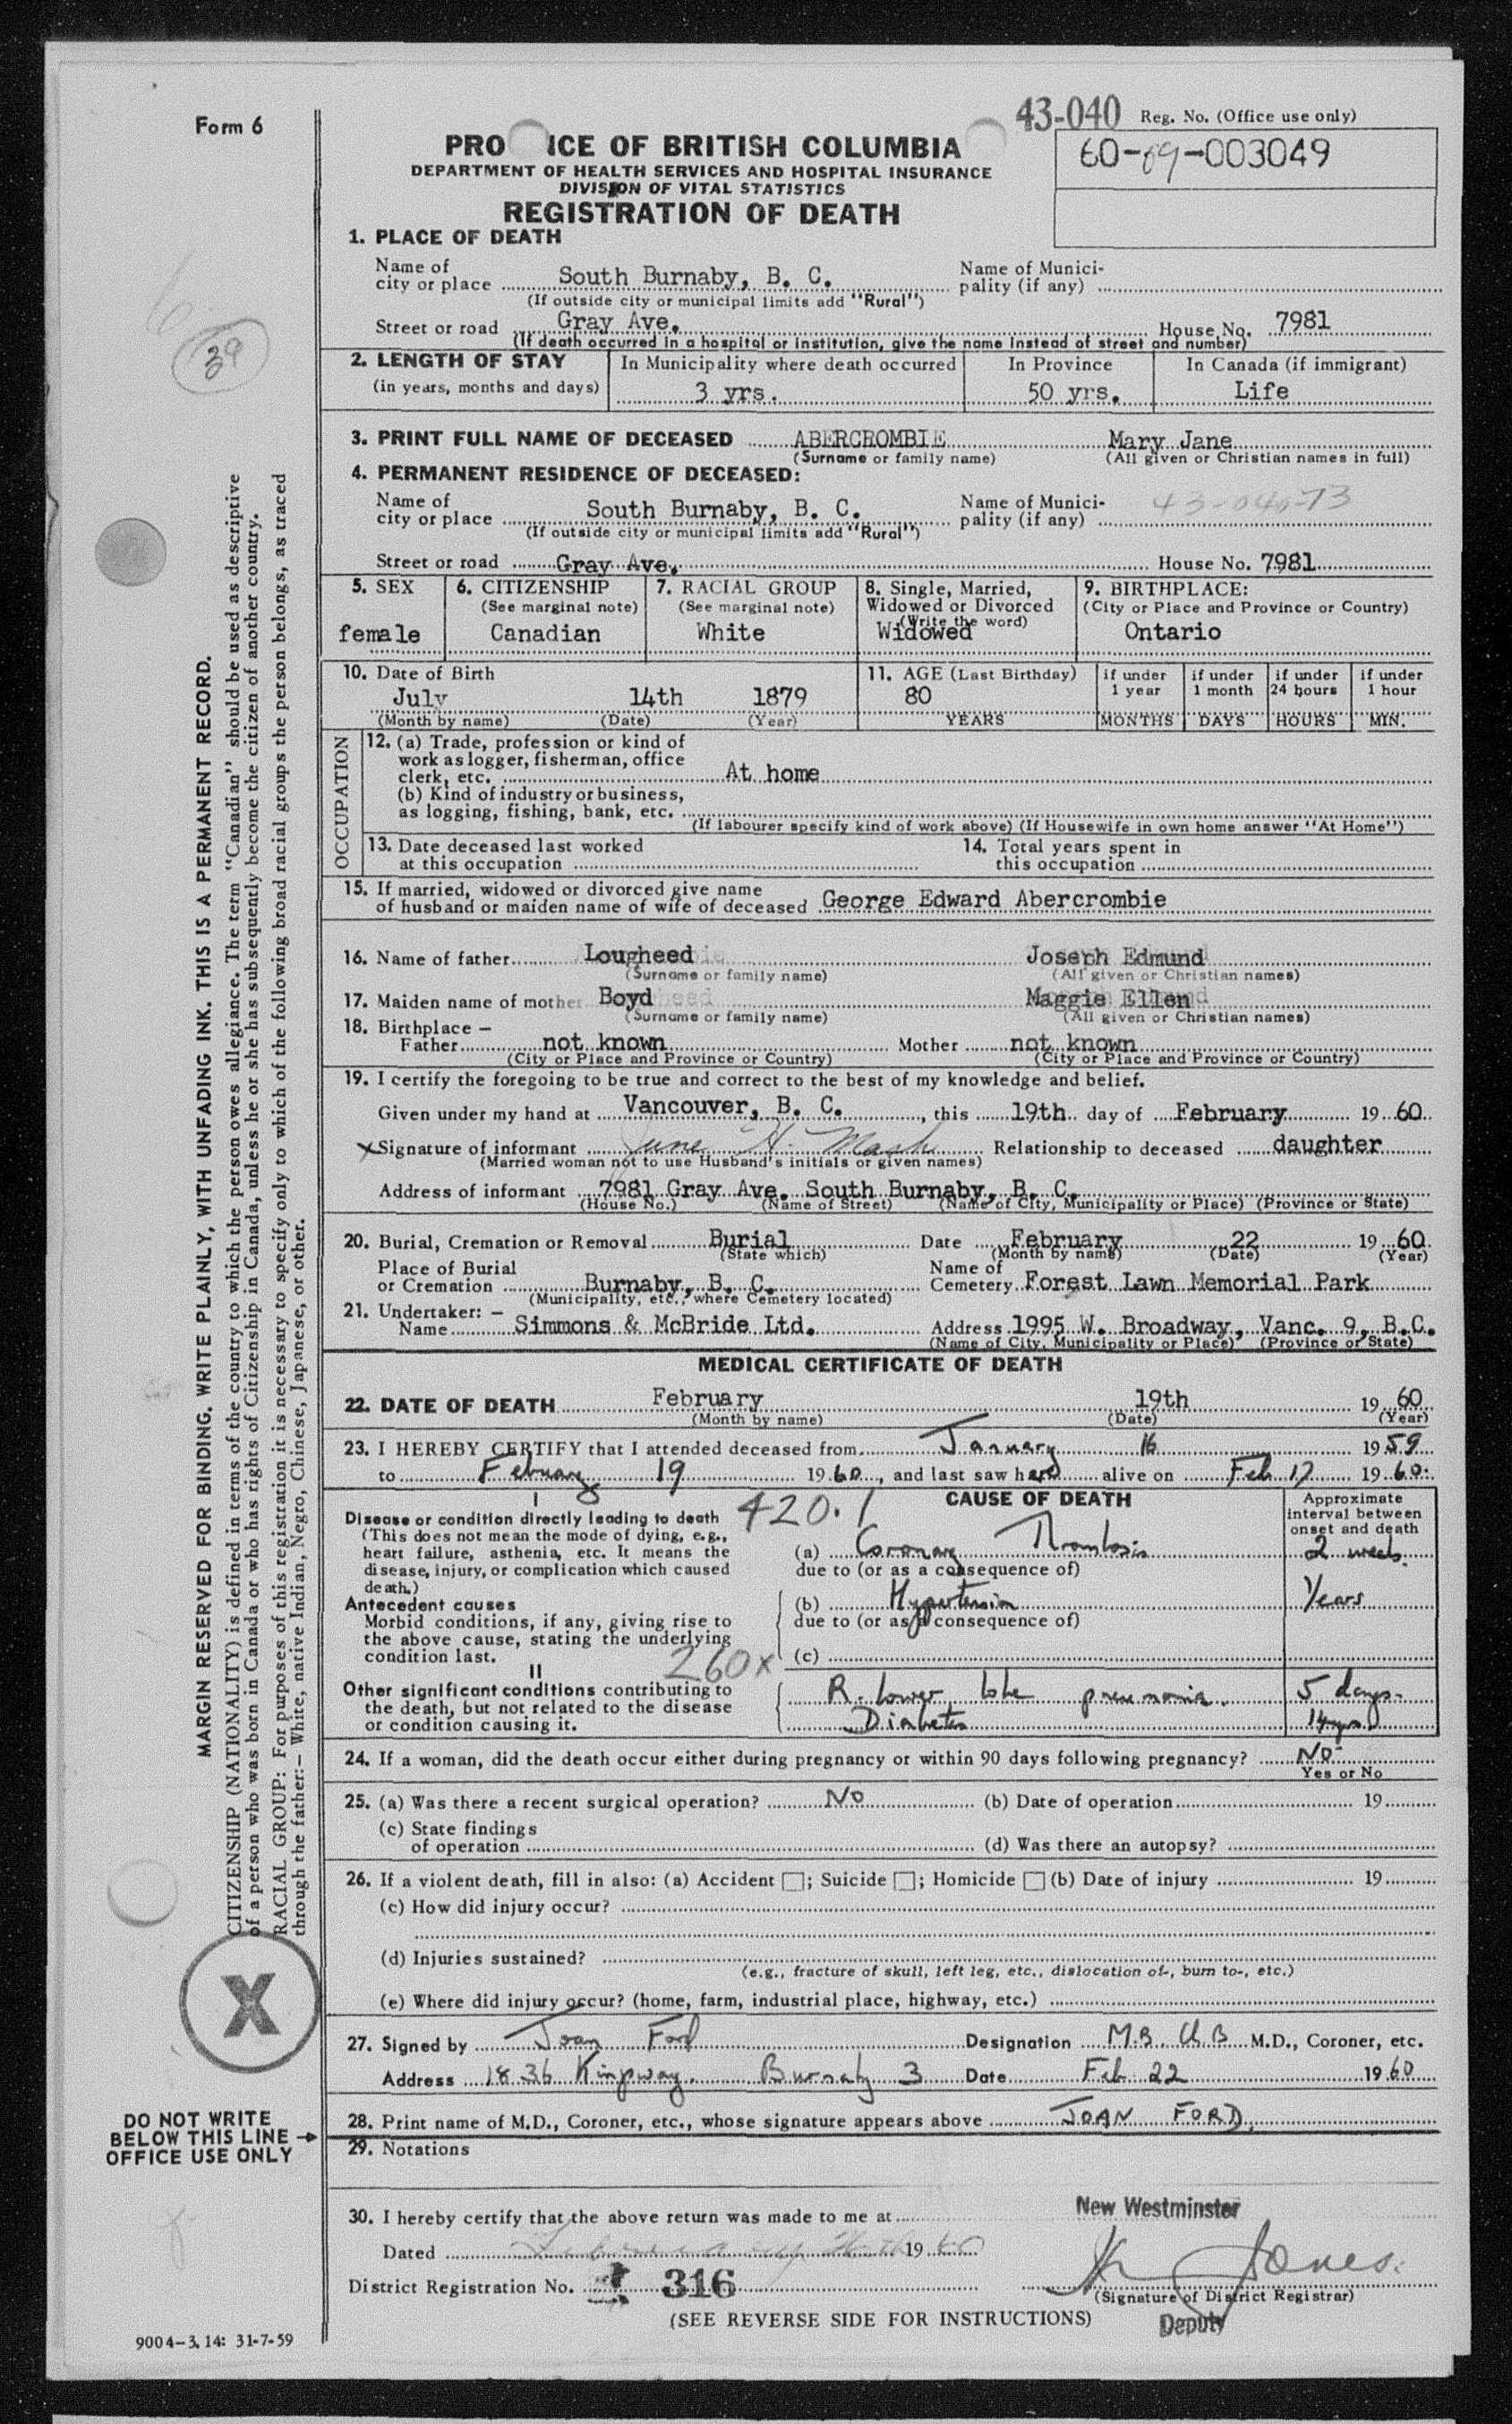 Form 6
43-040 Reg. No. (Office use only)
60-09-003049
PRO ICE OF BRITISH COLUMBIA
DEPARTMENT OF HEALTH SERVICES AND HOSPITAL INSURANCE
DIVISION OF VITAL STATISTICS
REGISTRATION OF DEATH
1. PLACE OF DEATH
Name of city or place South Burnaby, B. C. Name of Municipality (if any)
(If outside city or municipal limits add "Rural")
Street or road Gray Ave. House No. 7981
(If death occurred in a hospital or institution, give the name instead of street and number)
39
2. LENGTH OF STAY In Municipality where death occurred In Province In Canada (if immigrant)
(in years, months and days) 3 yrs. 50 yrs. Life
3. PRINT FULL NAME OF DECEASED ABERCROMBIE Mary Jane
(Surname or family name) (All given or Christian names in full)
4. PERMANENT RESIDENCE OF DECEASED:
Name of city or place South Burnaby, B. C. Name of Municipality (if any) 43-040-73
(If outside city or municipal limits add "Rural")
Street or road Gray Ave. House No. 7981
5. SEX 6. CITIZENSHIP 7. RACIAL GROUP 8. Single, Married, 9. BIRTHPLACE:
(See marginal note) (See marginal note) Widowed or Divorced (City or Place and Province or Country)
(Write the word)
female Canadian White Widowed Ontario
10. Date of Birth 11. AGE (Last Birthday) if under 1 year if under 1 month if under 24 hours if under 1 hour
July 14th 1879 80
(Month by name) (Date) (Year) YEARS MONTHS DAYS HOURS MIN.
OCCUPATION
12. (a) Trade, profession or kind of
work as logger, fisherman, office
clerk, etc. At home
(b) Kind of industry or business,
as logging, fishing, bank, etc.
(If labourer specify kind of work above) (If Housewife in own home answer "At Home")
13. Date deceased last worked 14. Total years spent in
at this occupation this occupation
15. If married, widowed or divorced give name
of husband or maiden name of wife of deceased George Edward Abercrombie
16. Name of father Lougheed Joseph Edmund
(Surname or family name) (All given or Christian names)
17. Maiden name of mother Boyd Maggie Ellen
(Surname or family name) (All given or Christian names)
18. Birthplace —
Father not known Mother not known
(City or Place and Province or Country) (City or Place and Province or Country)
19. I certify the foregoing to be true and correct to the best of my knowledge and belief.
Given under my hand at Vancouver, B. C., this 19th day of February 19 60
x Signature of informant June H. Mash Relationship to deceased daughter
(Married woman not to use Husband's initials or given names)
Address of informant 7981 Gray Ave. South Burnaby, B. C.
(House No.) (Name of Street) (Name of City, Municipality or Place) (Province or State)
20. Burial, Cremation or Removal Burial Date February 22 19 60
(State which) (Month by name) (Date) (Year)
Place of Burial Name of
or Cremation Burnaby, B. C. Cemetery Forest Lawn Memorial Park
(Municipality, etc., where Cemetery located)
21. Undertaker: —
Name Simmons & McBride Ltd. Address 1995 W. Broadway, Vanc. 9, B.C.
(Name of City, Municipality or Place) (Province or State)
MEDICAL CERTIFICATE OF DEATH
22. DATE OF DEATH February 19th 19 60
(Month by name) (Date) (Year)
23. I HEREBY CERTIFY that I attended deceased from January 16 1959
to February 19 1960, and last saw her alive on Feb 17 1960.
I
420.1
CAUSE OF DEATH
Approximate
interval between
onset and death
Disease or condition directly leading to death
(This does not mean the mode of dying, e.g.,
heart failure, asthenia, etc. It means the
disease, injury, or complication which caused
death.)
(a) Coronary Thrombosis 2 weeks.
due to (or as a consequence of)
Antecedent causes
Morbid conditions, if any, giving rise to
the above cause, stating the underlying
condition last.
(b) Hypertension Years
due to (or as a consequence of)
(c)
II
260x
Other significant conditions contributing to
the death, but not related to the disease
or condition causing it.
R. lower lobe pneumonia. 5 days.
Diabetes 14 yrs.
24. If a woman, did the death occur either during pregnancy or within 90 days following pregnancy? No
Yes or No
25. (a) Was there a recent surgical operation? No (b) Date of operation 19
(c) State findings
of operation (d) Was there an autopsy?
26. If a violent death, fill in also: (a) Accident ; Suicide ; Homicide (b) Date of injury 19
(c) How did injury occur?
(d) Injuries sustained?
(e.g., fracture of skull, left leg, etc., dislocation of-, burn to-, etc.)
(e) Where did injury occur? (home, farm, industrial place, highway, etc.)
27. Signed by Joan Ford Designation M.B. Ch B M.D., Coroner, etc.
Address 1836 Kingway. Burnaby 3 Date Feb 22 1960
28. Print name of M.D., Coroner, etc., whose signature appears above JOAN FORD.
29. Notations
30. I hereby certify that the above return was made to me at New Westminster
Dated February 19 60
District Registration No. 316 Jones.
(Signature of District Registrar)
Deputy
(SEE REVERSE SIDE FOR INSTRUCTIONS)
9004-3.14: 31-7-59
MARGIN RESERVED FOR BINDING. WRITE PLAINLY, WITH UNFADING INK. THIS IS A PERMANENT RECORD.
CITIZENSHIP (NATIONALITY) is defined in terms of the country to which the person owes allegiance. The term "Canadian" should be used as descriptive
of a person who was born in Canada or who has rights of Citizenship in Canada, unless he or she has subsequently become the citizen of another country.
RACIAL GROUP: For purposes of this registration it is necessary to specify only to which of the following broad racial groups the person belongs, as traced
through the father: — White, native Indian, Negro, Chinese, Japanese, or other.
X
DO NOT WRITE
BELOW THIS LINE →
OFFICE USE ONLY